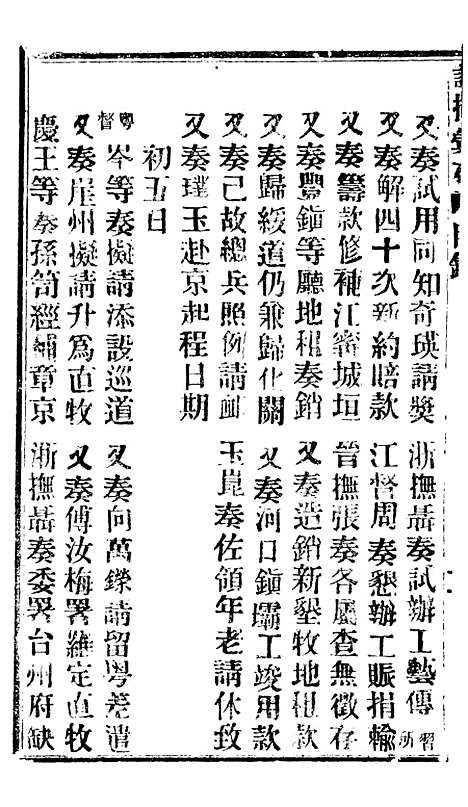 又奏試用同知奇瑛請獎　浙撫聶奏試辦工藝傳習所
又奏解四十次新約賠款　江督周奏懇辦工賑捐輸
又奏籌款修補江寗城垣　晉撫張奏各屬查無徵存
又奏豐鎮等廳地租奏銷　又奏造銷新墾牧地租款
又奏歸綏道仍兼歸化關　又奏河口鎮壩工竣用款
又奏已故總兵照例請卹　玉崑奏佐領年老請休致
又奏璞玉赴京起程日期
初五日
粵督岑等奏擬請添設巡道　又奏向萬鑅請留粵差遣
又奏崖州擬請升爲直牧　又奏傅汝梅署羅定直牧
慶王等奏孫笥經補章京　浙撫聶奏委署台州府缺